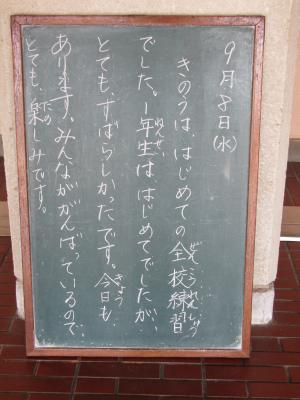 9月8日(水)
きのうは、はじめての全校練習
でした。1年生は、はじめてでしたが、
とても、すばらしかったです。今日も、
あります。みんながんばっているので、
とても、楽しみです。
ぜんこうれんしゅう
ねんせい
きょう
たの